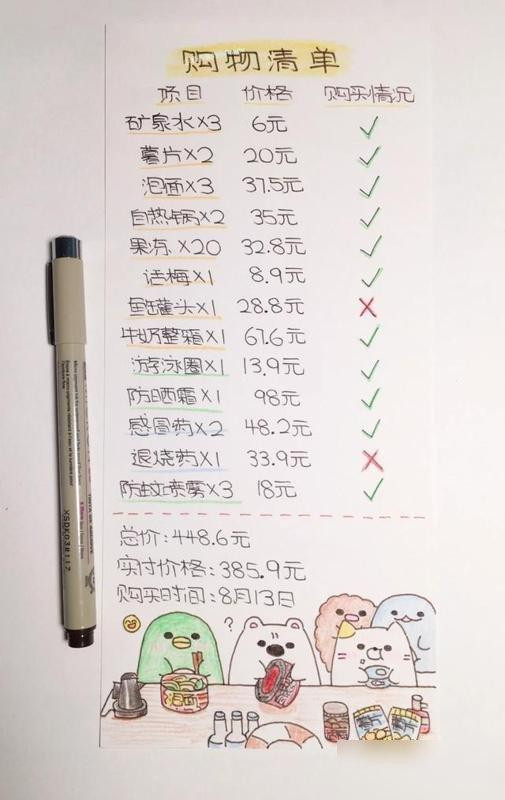 购物清单
项目 价格 购买情况
矿泉水×3 6元 ✓
薯片×2 20元 ✓
泡面×3 37.5元 ✓
自热锅×2 35元 ✓
果冻×20 32.8元 ✓
话梅×1 8.9元 ✓
鱼罐头×1 28.8元 ✗
牛奶整箱×1 67.6元 ✓
游泳圈×1 13.9元 ✓
防晒霜×1 98元 ✓
感冒药×2 48.2元 ✓
退烧药×1 33.9元 ✗
防蚊喷雾×3 18元 ✓
总价:448.6元
实付价格:385.9元
购买时间:8月13日
?
泡面
薯片
XSDK03#117